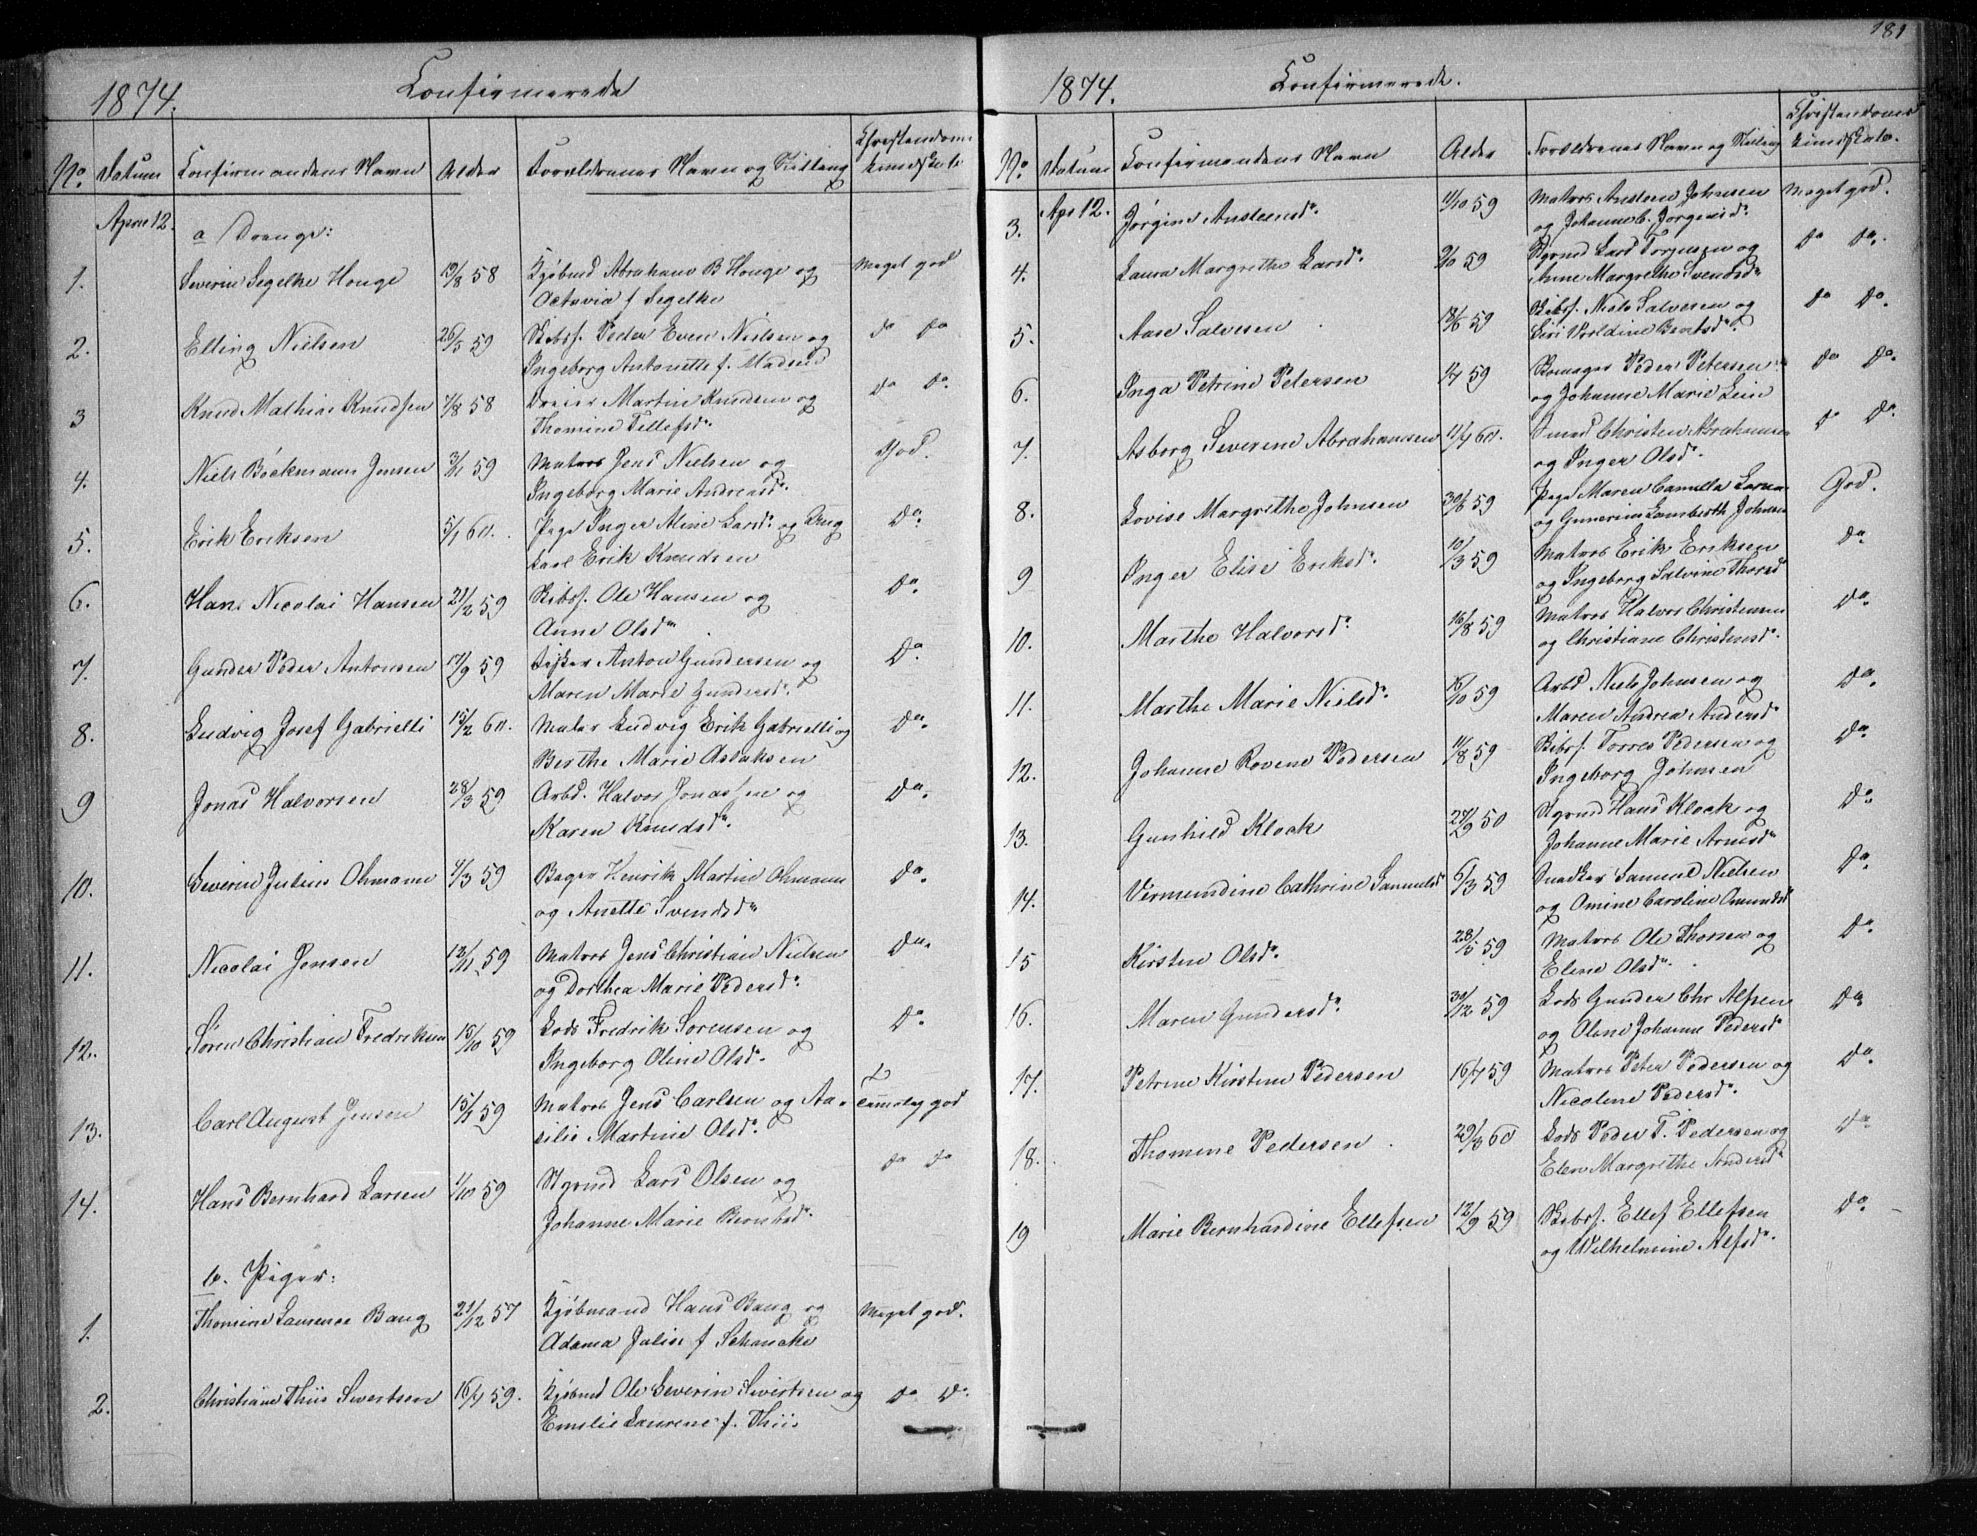 1874.
Confirmerede
No. Datum Confirmandens Navn Alder Forældrenes Navn og Stilling Christendoms Kundskab
April 12. a Drenge:
1. Severin Segelke Houge 19/8 58 Kjøbmd Abraham B Houge og Meget god
Octavia f Segelke
2. Elling Nielsen 26/5 59 Skibsf. Peder Even Nielsen og do do
Ingeborg Antonette f. Madsen
3 Knud Mathias Knudsen 7/8 58 Dreier Martin Knudsen og do do.
Thomine Tellefsdr.
4. Niels Böckmann Jensen 3/11 59 Matros Jens Nielsen og God.
Ingeborg Marie Andreasdr.
5. Erik Eriksen 5/1 60. Pige Inger Aline Larsdr. og Ung
karl Erik Knudsen Do.
6. Hans Nicolai Hansen 21/2 59 Skibsf. Ole Hansen og Do.
Anne Olsdr
7. Gunder Peder Antonsen 17/9 59 Anton Gundersen og Do.
Maren Marie Gundersdr.
8. Ludvig Josef Gabrielli 15/2 60. Maler Ludvig Erik Gabrielli og Do.
Berthe Marie Aslaksen
9 Jonas Halvorsen 28/3 59 Arbd. Halvor Jonassen og Do.
Karen Knudsdr.
10. Severin Julius Ohmann 4/3 59 Bager Henrik Martin Ohmann Do.
og Anette Svendsdr
11. Nicolai Jensen 12/11 59 Matros Jens Christian Nielsen Do.
og Dorthea Marie Pedersdr.
12. Søren Christian Fredriksen 15/10 59 Lods Fredrik Sørensen og Do.
Ingeborg Oline Olsdr.
13. Carl August Jensen 59 Matros Jens Carlsen og Aa- Temmelig god
silie Martine Olsdr.
14. Hans Bernhard Larsen 1/10 59 Styrmd Lars Olsen og do do
Johanne Marie Berntsdr.
b. Piger:
1. Thomine Laurence Bang 21/12 57 Kjøbmand Hans Bang og Meget god.
Adama Julie f Schancke
2. Christiane Thiis Sivertsen 16/7 59. Kjøbmd Ole Severin Sivertsen og do Do.
Emelie Laurene f. Thiis
181
1874.
Confirmerede.
No. Datum Confirmandens Navn Alder Forældrenes Navn og Stilling Christendoms Kundskab.
3. Apr 12. Jørgine Austeensdr. 11/10 59 Matros Austeen Johnsen Meget god.
og Johanne C. Jørgensdr.
4. Laura Margrethe Larsdr. 9/10 59 Styrmd Lars Torjusen og do do.
Anne Margrethe Svendsdr
5. Aase Salvesen 59 Skibsf. Niels Salvesen og do Do.
Siri Veroldine Berntsdr.
6. Inga Petrine Petersen 59 Skomager Peder Petersen do Do.
og Johanne Marie Lein
7. Asborg Severine Abrahamsen 11/4 60. Smed Christen Abrahamsen do Do.
og Inger Olsdr.
8. Lovise Margrethe Johnsen 30/6 59 Pige Maren Camilla God.
og Gunerius Lamberth Johnsen
9 Inger Elise Eriksdr. 10/3 59 Matros Erik Eriksen Do.
og Ingeborg Salvine Thorsd
10. Marthe Halvorsdr. 16/8 59 Matros Halvor Christensen Do.
og Christiane Christensdr.
11. Marthe Marie Nielsdr. 16/10 59 Arbd Niels Johnsen og Do.
Maren Andrea Andersdr
12. Johanne Rovene Pedersen 11/8 59 Skibsf. Torres Pedersen og Do.
Ingeborg Johnsen
13. Gunhild Klock 27/9 50 Styrmd Hans Klock og Do.
Johanne Marie Arnesdr
14. Virmundine Cathrine Samuelsd 6/3 59 Snedker Samuel Nielsen Do.
og Omine Caroline Omundsd
15 Kirsten Olsdr. 28/5 59 Matros Ole Thorsen og Do.
Elene Olsdr.
16. Maren Gundersdr. 30/12 59 Lods Gunder Chr Alfsen Do
og Olene Johanne Pedersdr
17. Petrine Kirstine Pedersen 16/7 59 Matros Peter Pedersen og Do.
Nicoline Pedersdr.
18. Thomine Pedersen 60 Lods Peder T. Pedersen og Do
Elen Margrethe Andersdr
19 Marie Bernhardine Ellefsen 12/9 59 Skibsf. Ellef Ellefsen Do.
og Wilhelmine Alfsdr.